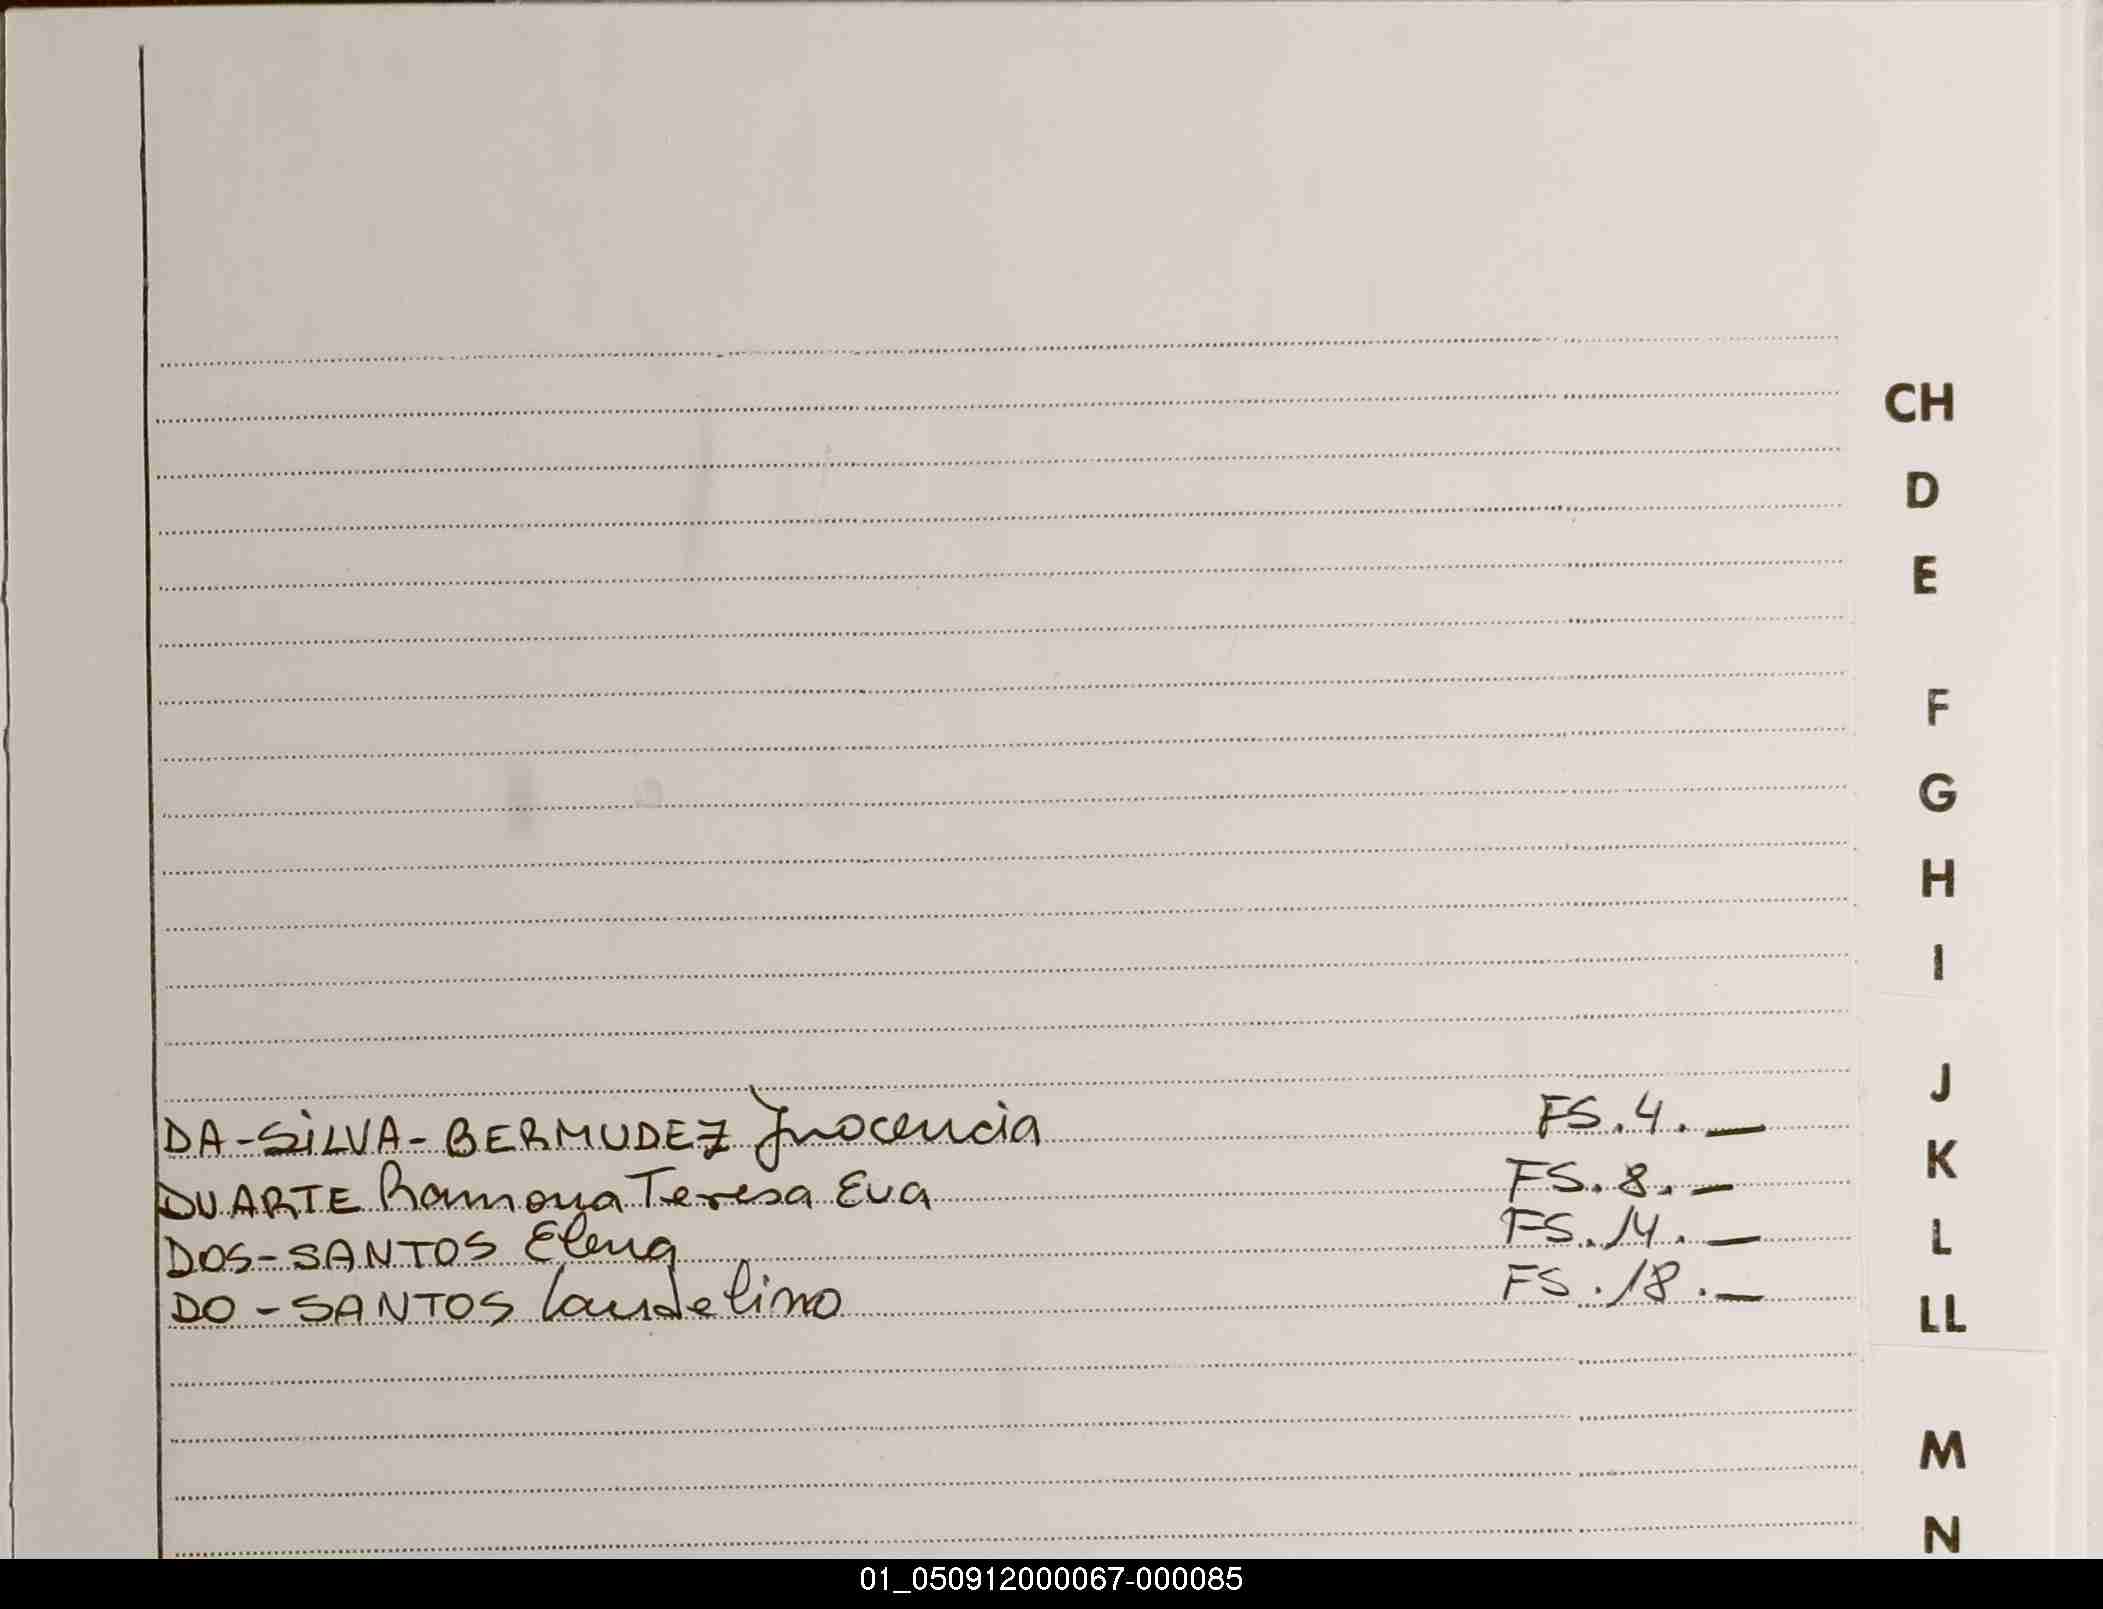 CH
D
E
F
G
H
I
J
DA-SiLVA-BERMUDEZ Inocencia FS.4.—
K
DUARTE Ramona Teresa Eva FS.8.—
DOS-SANTOS Elena FS.14.—
L
DO-SANTOS Laudelino FS.18.—
LL
M
N
01_050912000067-000085